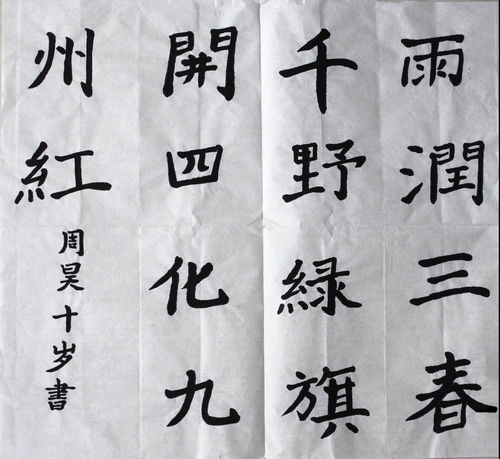 雨潤三春
千野緑旗
開四化九
州紅
周昊十岁書